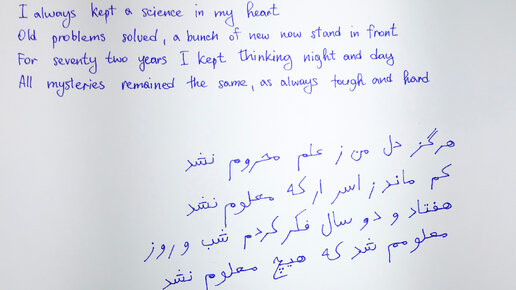 I always kept a science in my heart
Old problems solved, a bunch of new now stand in front
For seventy two years I kept thinking night and day
All mysteries remained the same, as always tough and hard
هرگز دل من ز علم محروم نشد
کم ماند ز اسرار که معلوم نشد
هفتاد و دو سال فکر کردم شب و روز
معلومم شد که هیچ معلوم نشد